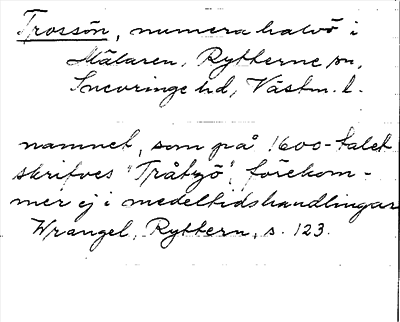 Trossön, numera halvö i
Mälaren, Rytterne sn,
Snevringe hd, Västm. l.
namnet, som på 1600-talet
skrifves "Tråtzö", förekom-
mer ej i medeltidshandlingar
Wrangel, Ryttern, s. 123.